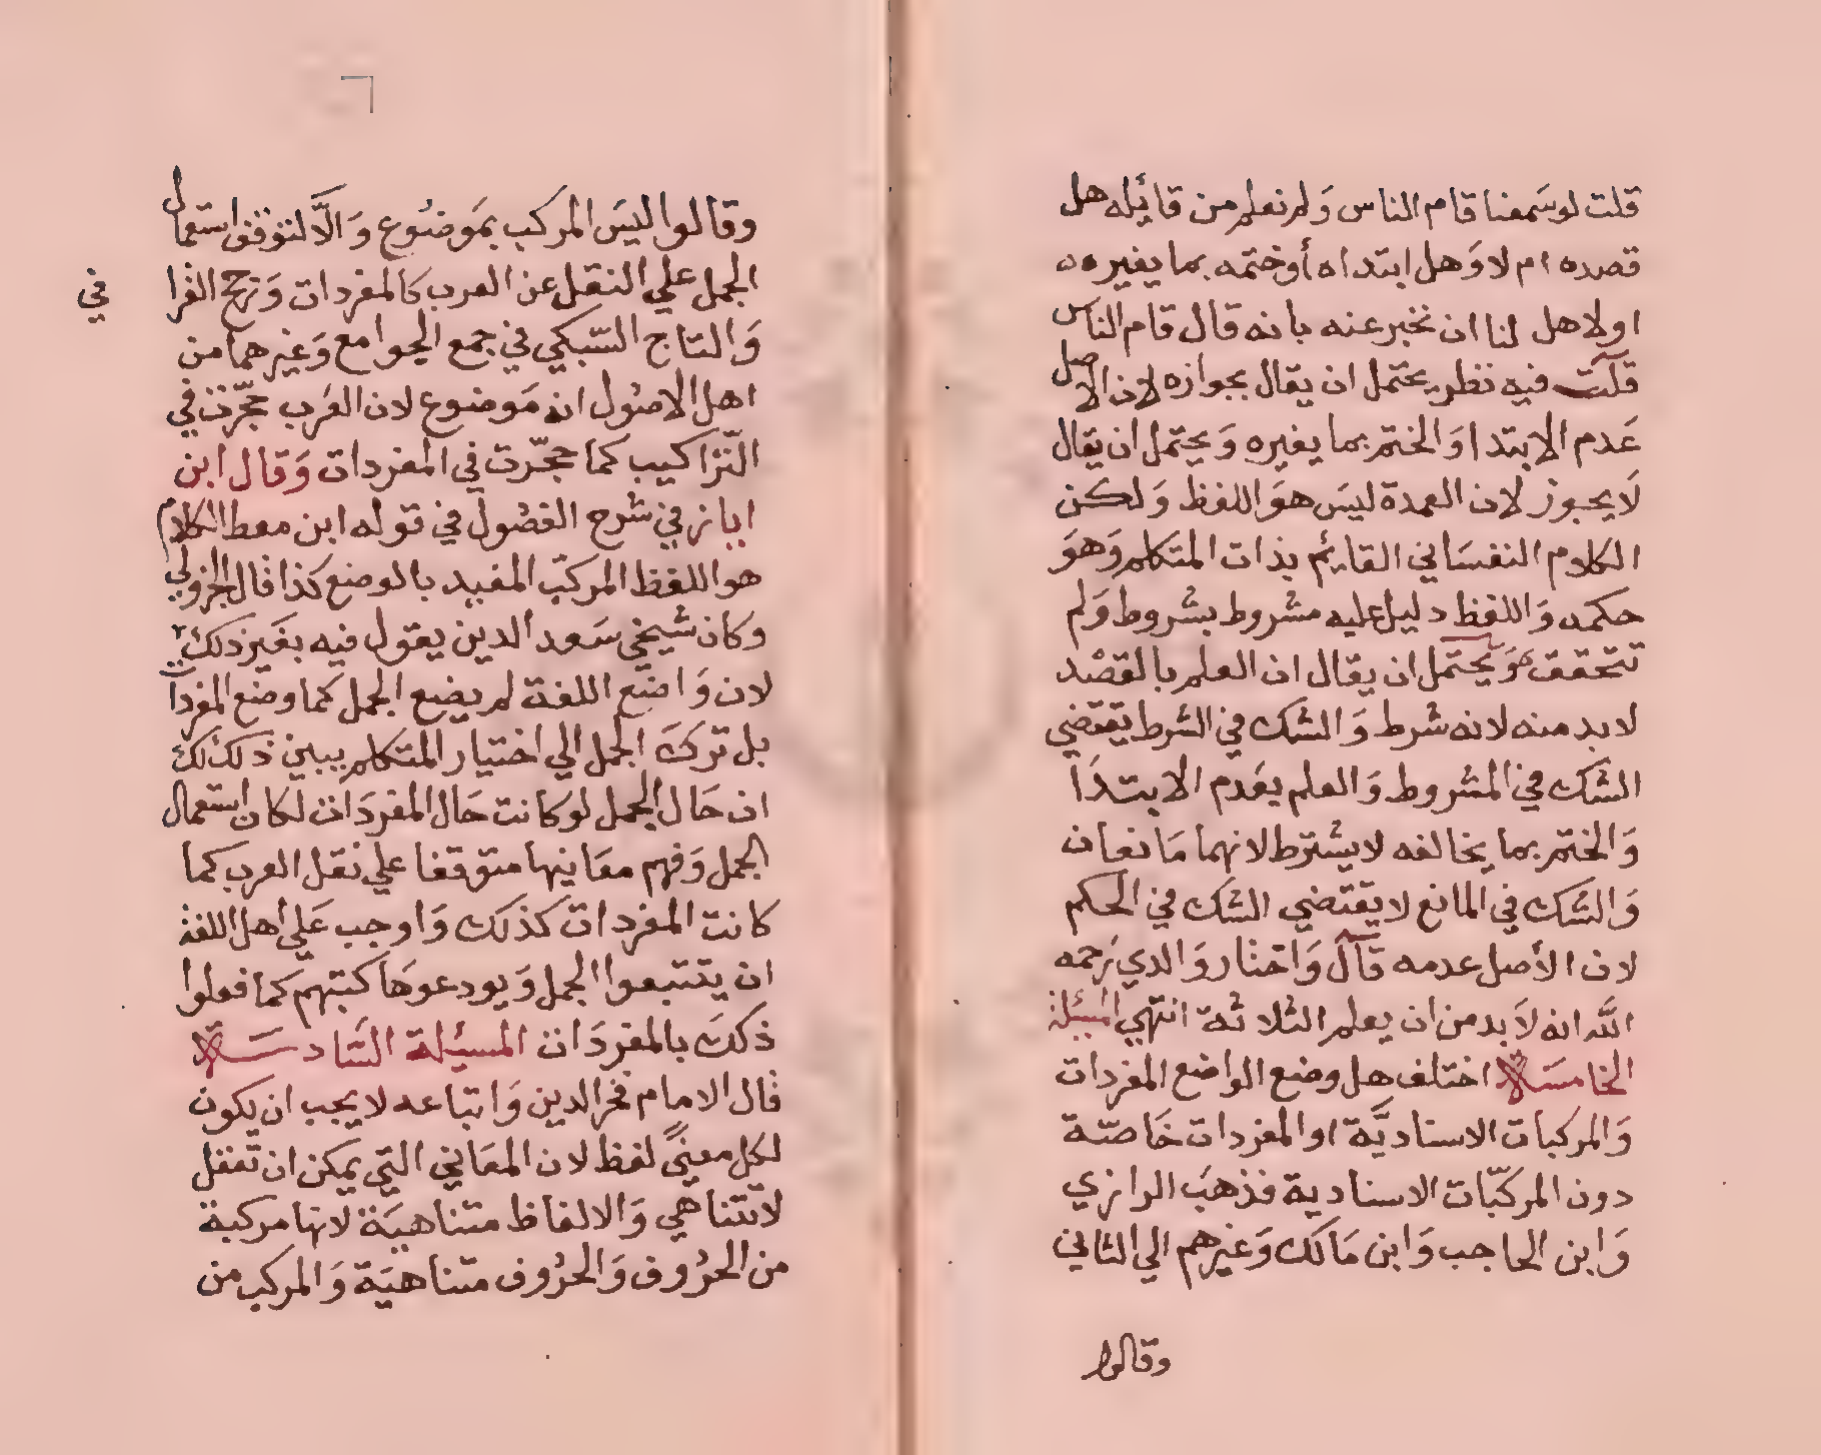 قلت لو سَمعنا قام الناس وَلم نعلم من قائله هل
قصده ام لا وَهل ابتداه أو ختمه بما يغيره
اولا هل لنا ان نخبر عنه بانه قال قام الناس
قلت فيه نظر يحتمل ان يقال بجوازه لان الاصل
عَدم الابتدا وَالختم بما يغيره وَيحتمل ان يقال
لَا يجوز لان العمدة ليسَ هوَ اللفظ وَلكن
الكلام النفسَاني القايم بذات المتكلم وَهوَ
حكمه وَاللفظ دليل عليه مشروط بشروط وَلم
تتحقق وَيحتمل ان يقال ان العلم بالقصْد
لا بد منه لانه شرط وَالشك في الشرط يقتضي
الشك في المشروط وَالعلم بعَدم الابتدَا
وَالختم بما يخالفه لا يشترط لانهما مَانعان
وَالشك في المانع لا يقتضي الشك في الحكم
لان الأصل عدمه قال وَاختار وَالدي رَحمه
الله انه لَا بد من ان يعلم الثلاثة انتهي المسئلة
الخامسَة اختلف هل وضع الواضع المفردات
وَالمركبات الاسناديَّة او المفردات خَاصّة
دون المركبّات الاسنادية فذهبَ الرازي
وَابن الحاجب وَابن مَالك وَغيرهم الي الثاني
وقالوا
وقالوا ليسَ المركب بمَوضُوع وَالَّا لتوقف استعمال
الجمل علي النقل عن العرب كَالمفردات وَرجح القرافي
وَالتاج السّبكي في جمع الجوامع وَغيرهما من
اهل الاصُول انه مَوضوع لان العَرب حجّرت في
التّراكيب كما حجّرت في المفردات وَقال ابن
اياز في شرح الفصُول في قوله ابن معط الكلام
هو اللفظ المركبّ المفيد بالوضع كذا قال الجزولي
وكان شيخي سَعد الدين يقول فيه بغَير ذلك
لان وَاضع اللغة لم يضع الجمل كما وضع المفردات
بل تركَ الجمل الي اختيار المتكلم يبين ذلك لك
ان حَال الجمل لو كانت حَال المفردَات لكان استعمال
الجمل وَفهم معَانيها متوقفا علي نقل العرب كما
كانت المفردات كذلك وَاوجب عَلي أهل اللغة
ان يتتبعوا الجمل وَيودعوهَا كتبهم كما فعلوا
ذلكَ بالمفردَات المسئلة السَّادسَة
قال الامام فخر الدين وَاتباعه لا يجب ان يكون
لكل معنيً لفظ لان المعَاني التي يمكن ان تعقل
لا تتناهي وَالالفاظ متناهيَة لانها مركبة
من الحرُوف وَالحرُوف متناهيَة وَالمركب من